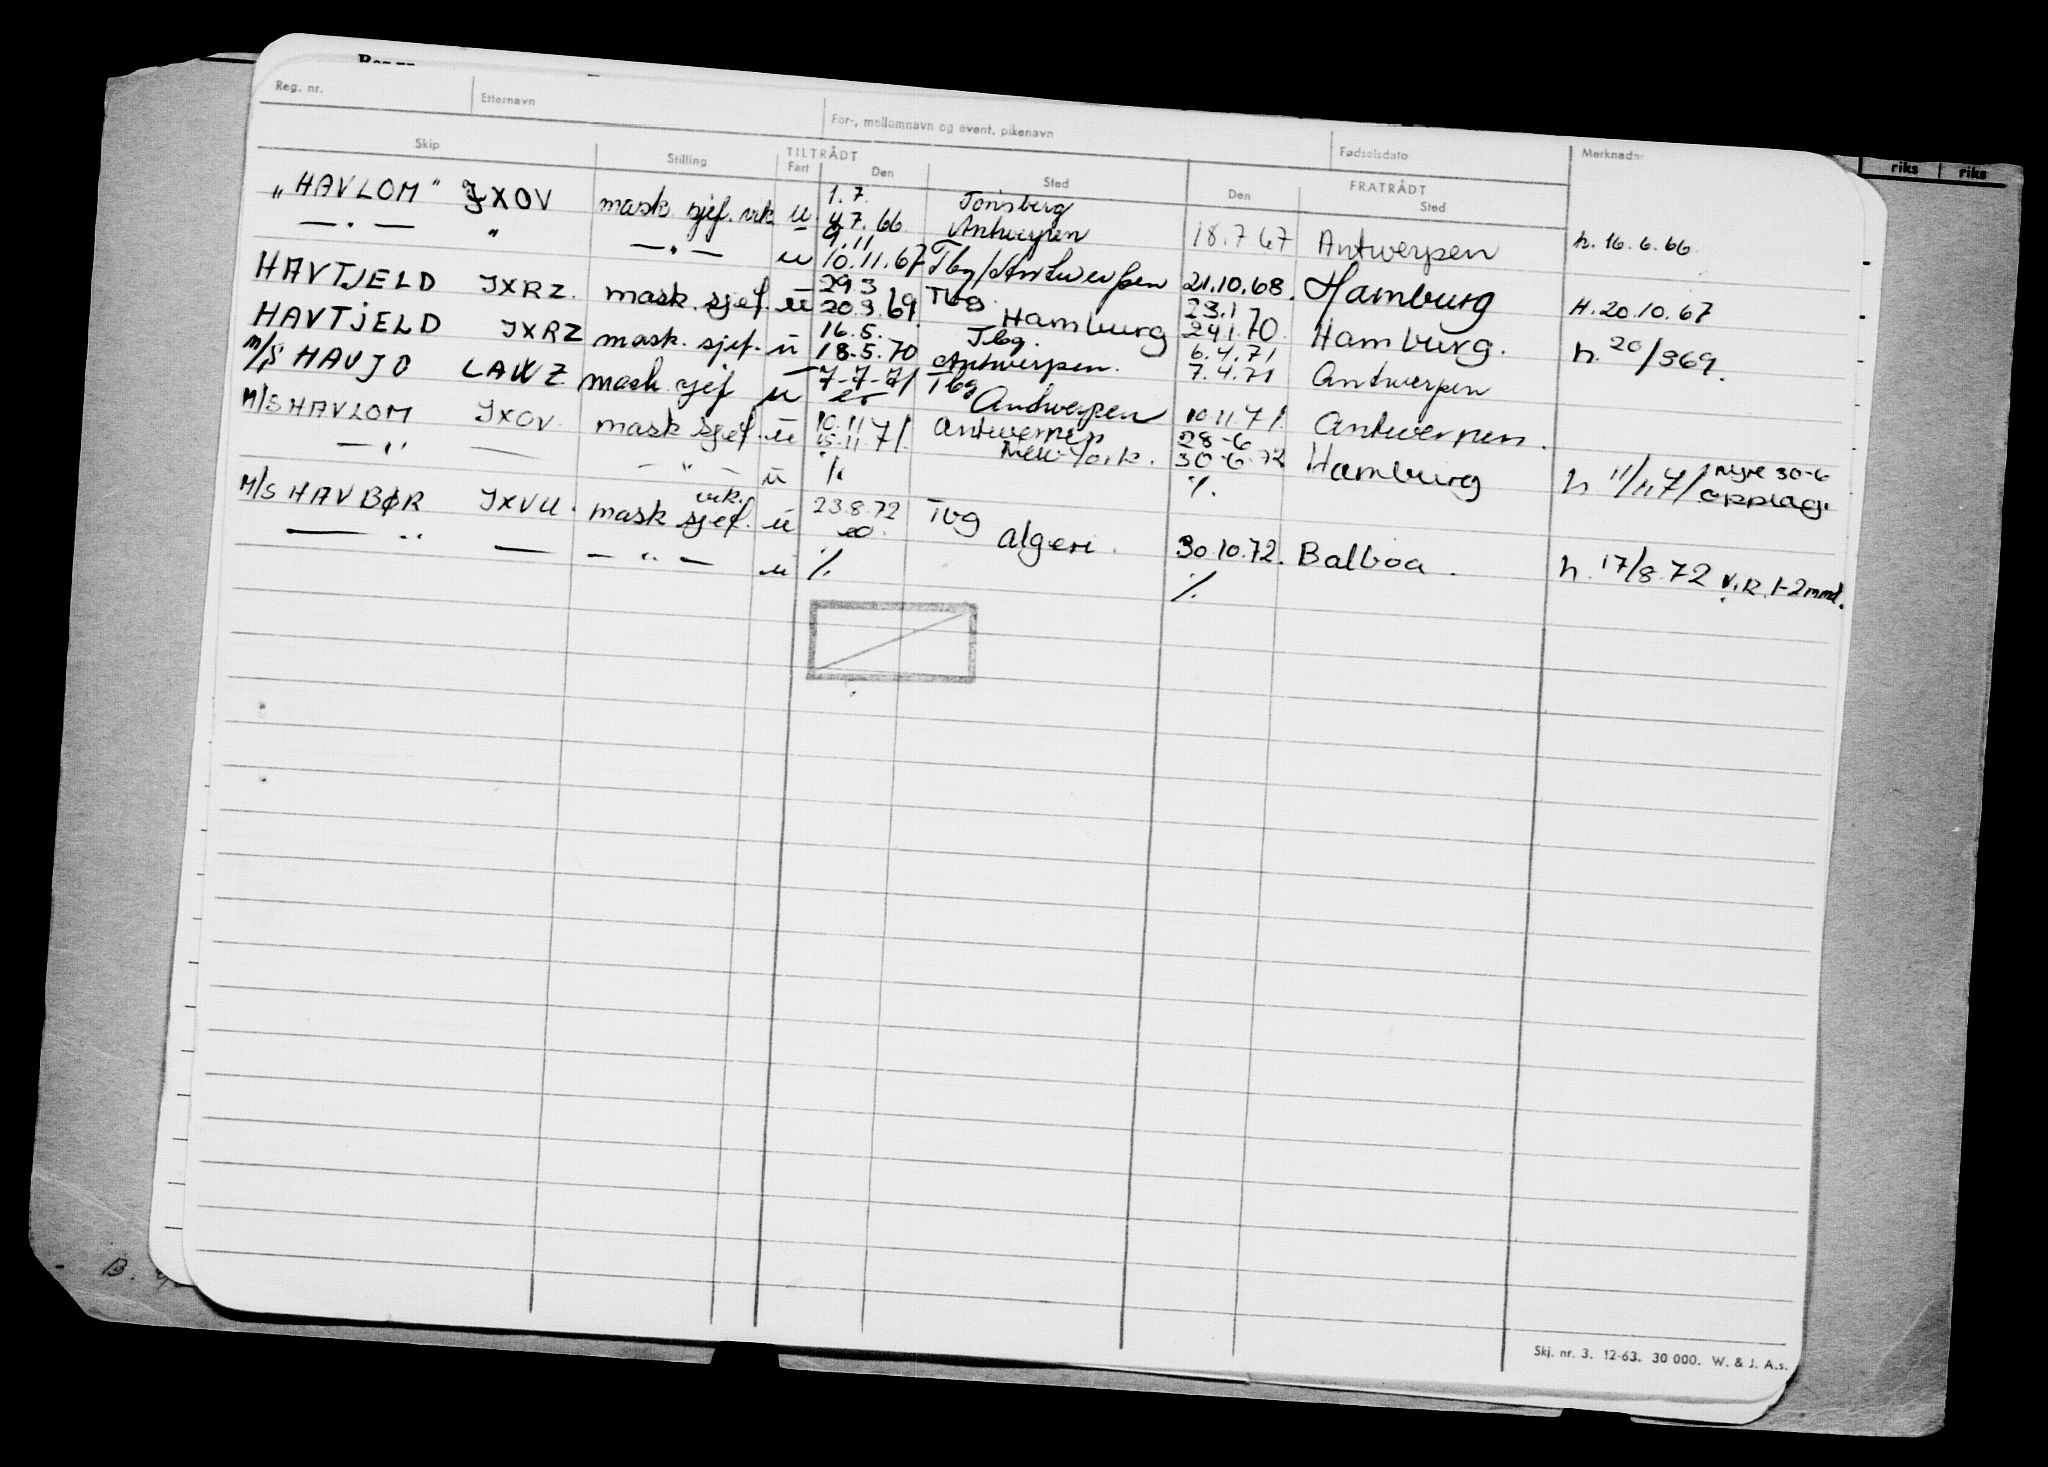 Reg. nr. Etternavn For-, mellomnavn og event. pikenavn Fødselsdato Merknader
Skip Stilling TILTRÅDT FRATRÅDT
Fart Den Sted Den Sted
„HAVLOM" JXOV mask. sjef. vik u 1.7. Tønsberg
4.7.66 Antwerpen 18.7.67 Antwerpen h. 16.6.66
— " — " — " — u 9.11
10.11.67 Tbg/Antwerpen 21.10.68. Hamburg H.20.10.67
HAVTJELD JXRZ. mask. sjef. u 29.3 Tbg.
20.3.69. Hamburg 23.1
24.1.70. Hamburg. h. 20/369.
HAVTJELD JXRZ mask. sjef. u 16.5. Tbg.
18.5.70 Antwerpen. 6.4.71
7.4.71 Antwerpen
M/S HAVJO LAWZ mask sjef u 7-7-71 Tbg
Antwerpen 10.11.71. Antwerpen.
M/S HAVLOM JXOV. mask sjef. u 10.11.71. Antwerpen
15.11 New York. 28-6
30-6-72 Hamburg h 11/11.71 myre 30-6
opplag.
— " — — " — u % %.
M/S HAVBØR JXVU. mask sjef. vik. u 23.8.72 Tbg
Algeri. 30.10.72. Balboa. h. 17/8.72 V.R. 1-2 mnd.
— " — — " — u % %
riks riks
Skj. nr. 3. 12-63. 30 000. W. & J. A.s.